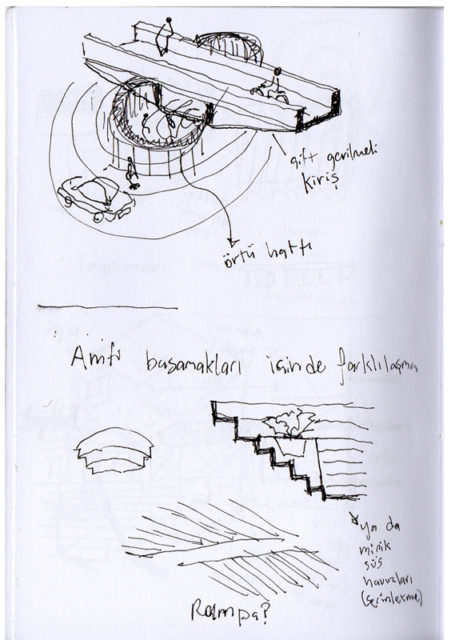 çift gerilmeli
kiriş
örtü hattı
Amfi basamakları içinde farklılaşma
ya da
minik
süs
havuzları
(serinletme)
Rampa?